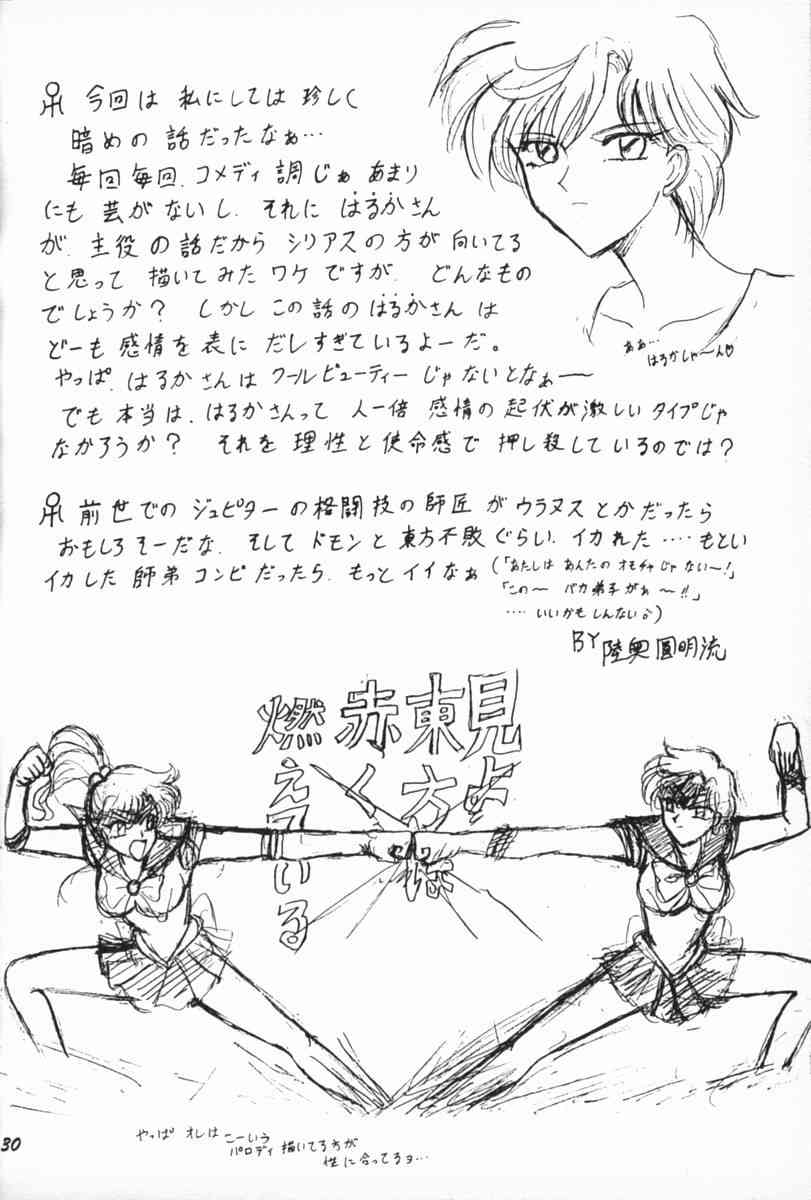 今回は 私にしては 珍しく
暗めの 話だったなぁ…
毎回毎回、コメディ調じゃ あまり
にも 芸がないし、それに はるかさん
が、主役の話だから シリアスの方が向いてる
と思って 描いてみたワケですが、どんなもの
でしょうか? しかし この話のはるかさんは
どーも 感情を表に だしすぎているよーだ。
やっぱ、はるかさんは クールビューティーじゃないとなぁー
でも本当は、はるかさんって 人一倍 感情の起伏が激しいタイプじゃ
なかろうか? それを 理性と使命感で 押し殺しているのでは?
ああ…
はるかしゃ〜ん♡
前世での ジュピターの格闘技の師匠がウラヌスとかだったら
おもしろそーだな、そして ドモンと東方不敗ぐらい、イカれた‥‥もとい
イカした 師弟コンビだったら、もっとイイなぁ(「あたしは あんたの オモチャじゃない〜!」
「この〜 バカ弟子がぁ〜!!」
‥‥いいかもしんない)
BY 陸奥圓明流
見よ
東方は
赤く
燃えている
やっぱ オレは こーいう
パロディ描いてる方が
性に合ってるヨ…
30